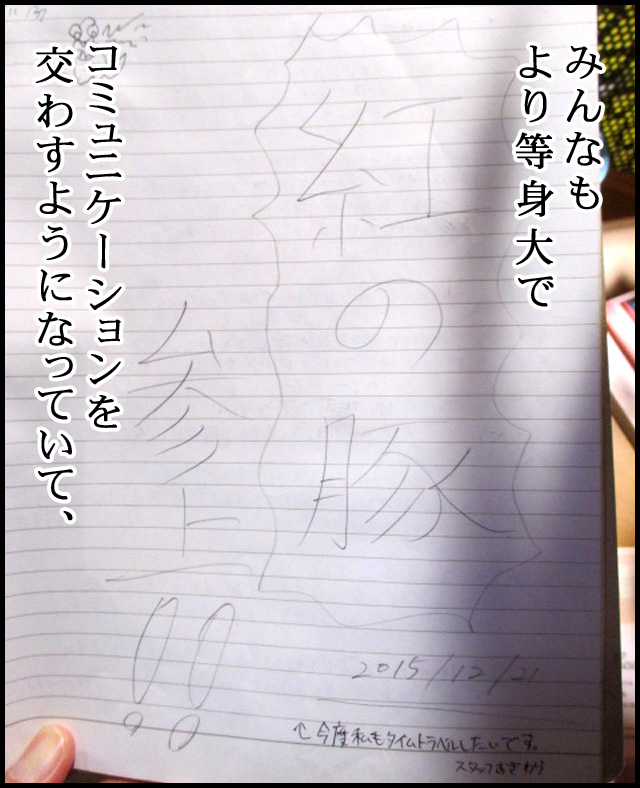 みんなも
より等身大で
紅の豚
参上!!
2015/12/21
↑今度私もタイムトラベルしたいです。
スタッフおぎわら
コミュニケーションを
交わすようになっていて、